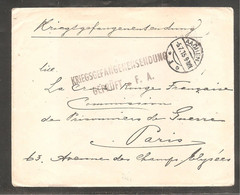 Kriegsgefangenensendung
KRIEGSGEFANGENENSENDUNG
GEPRÜFT F. A.
La Croix Rouge Française
Commission
des Prisonniers de Guerre
Paris
63, Avenue des Champs Elysées